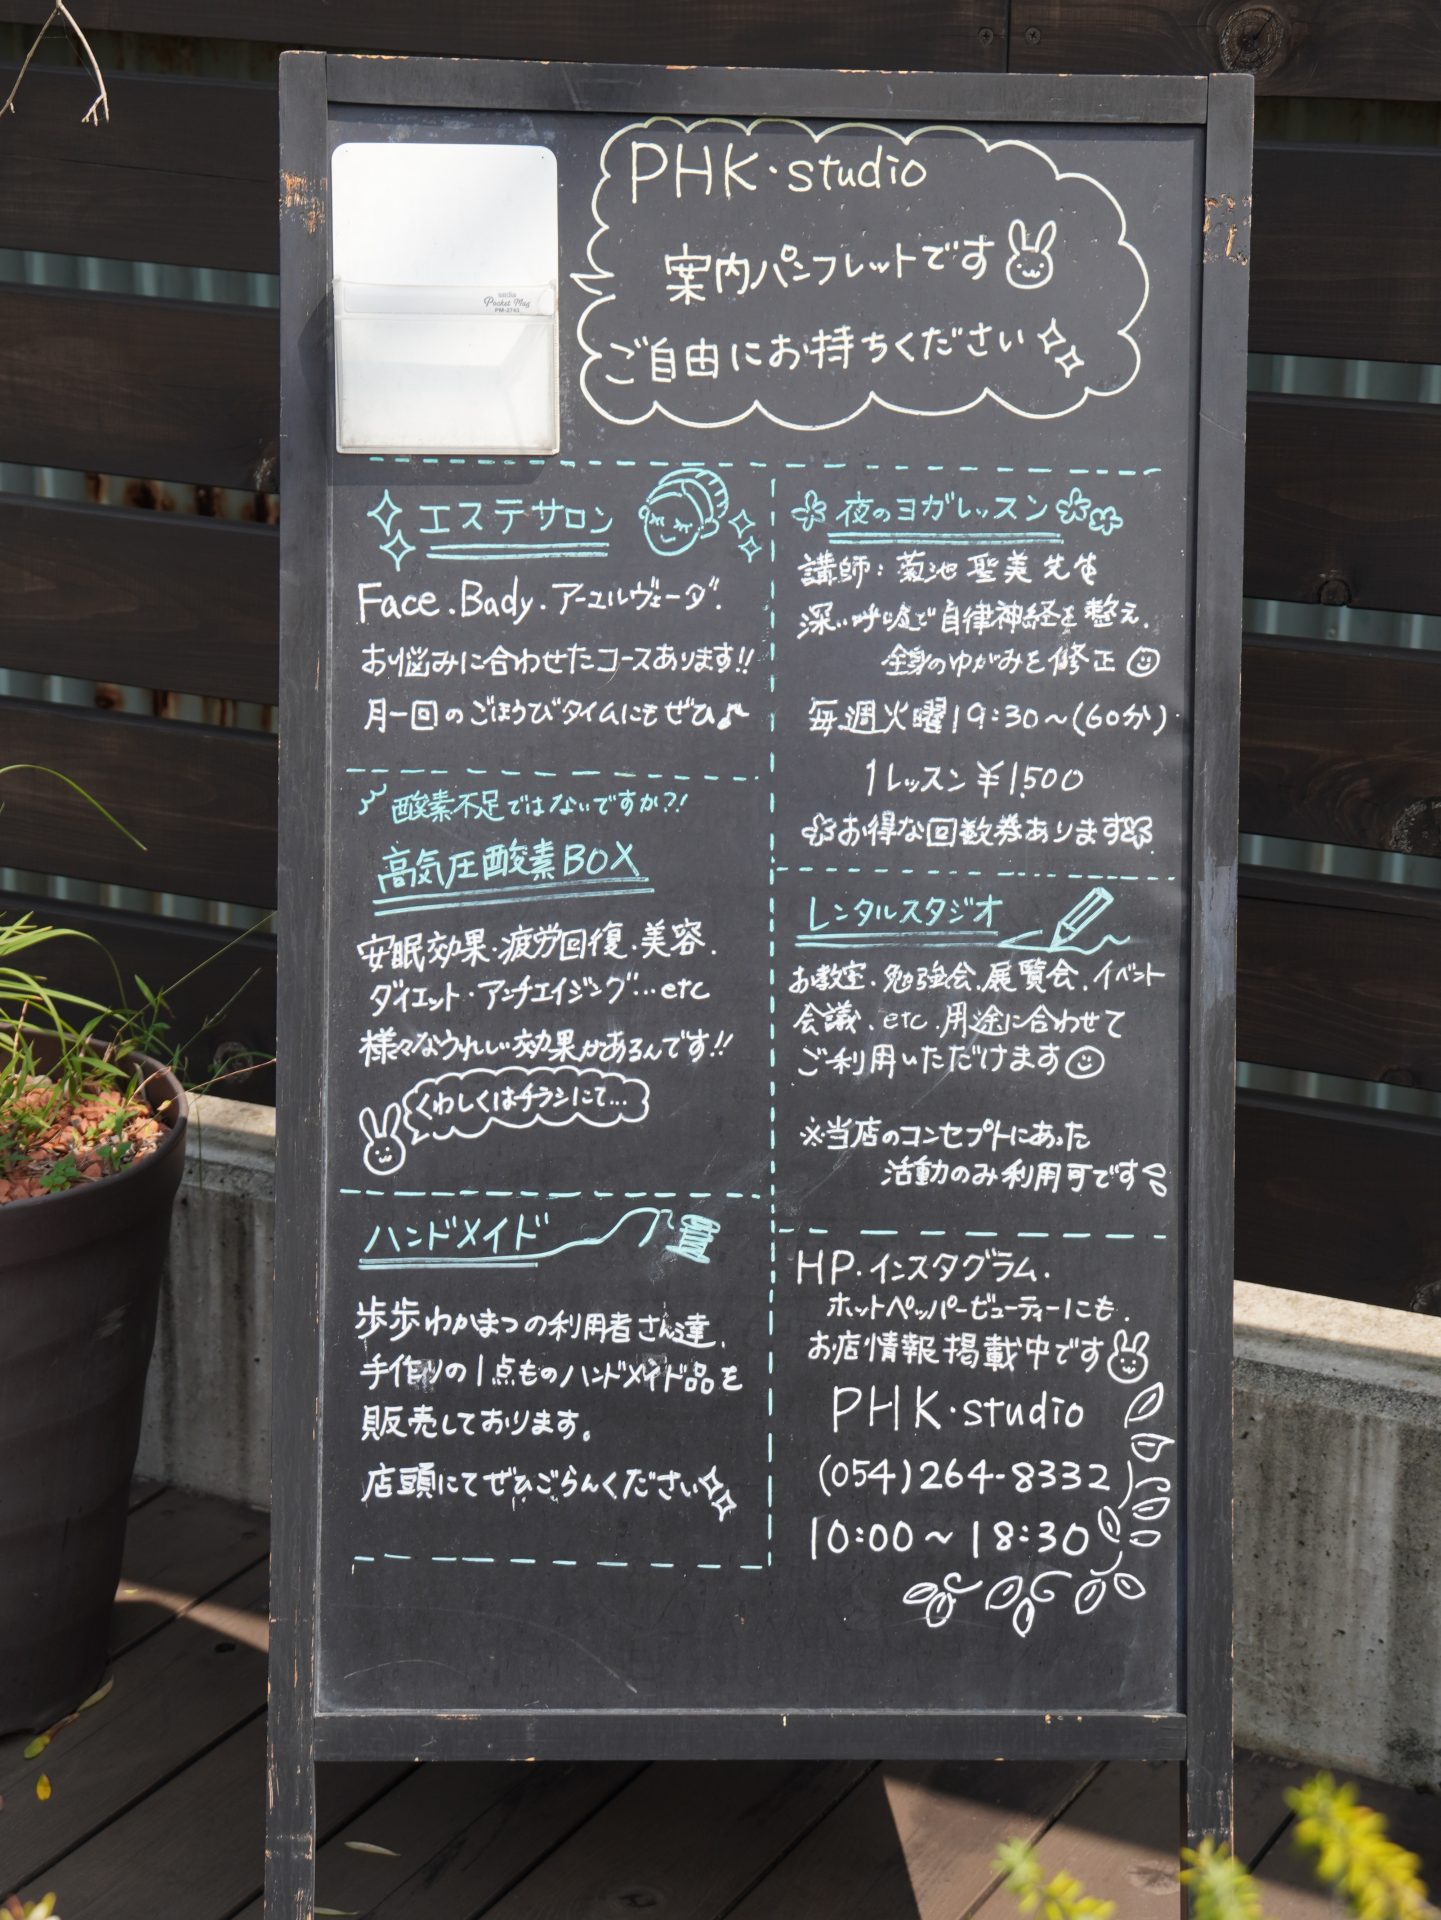 PHK・studio
案内パンフレットです
ご自由にお持ちください
sedia
Pocket Mag
PM-2743
エステサロン
Face.Bady.アーユルヴェーダ.
お悩みに合わせたコースあります!!
月一回のごほうびタイムにもぜひ♪
酸素不足ではないですか?!
高気圧酸素BOX
安眠効果・疲労回復・美容.
ダイエット・アンチエイジング…etc
様々なうれしい効果があるんです!!
くわしくはチラシにて…
ハンドメイド
歩歩わかまつの利用者さん達.
手作りの1点ものハンドメイド品を
販売しております。
店頭にてぜひごらんください
夜のヨガレッスン
講師:菊池 聖美 先生
深い呼吸で自律神経を整え.
全身のゆがみを修正
毎週火曜19:30~(60分)
1レッスン¥1,500
お得な回数券あります
レンタルスタジオ
お教室.勉強会.展覧会.イベント
会議.etc.用途に合わせて
ご利用いただけます
※当店のコンセプトにあった
活動のみ利用可です
HP.インスタグラム.
ホットペッパービューティーにも.
お店情報掲載中です
PHK・studio
(054)264-8332
10:00~18:30